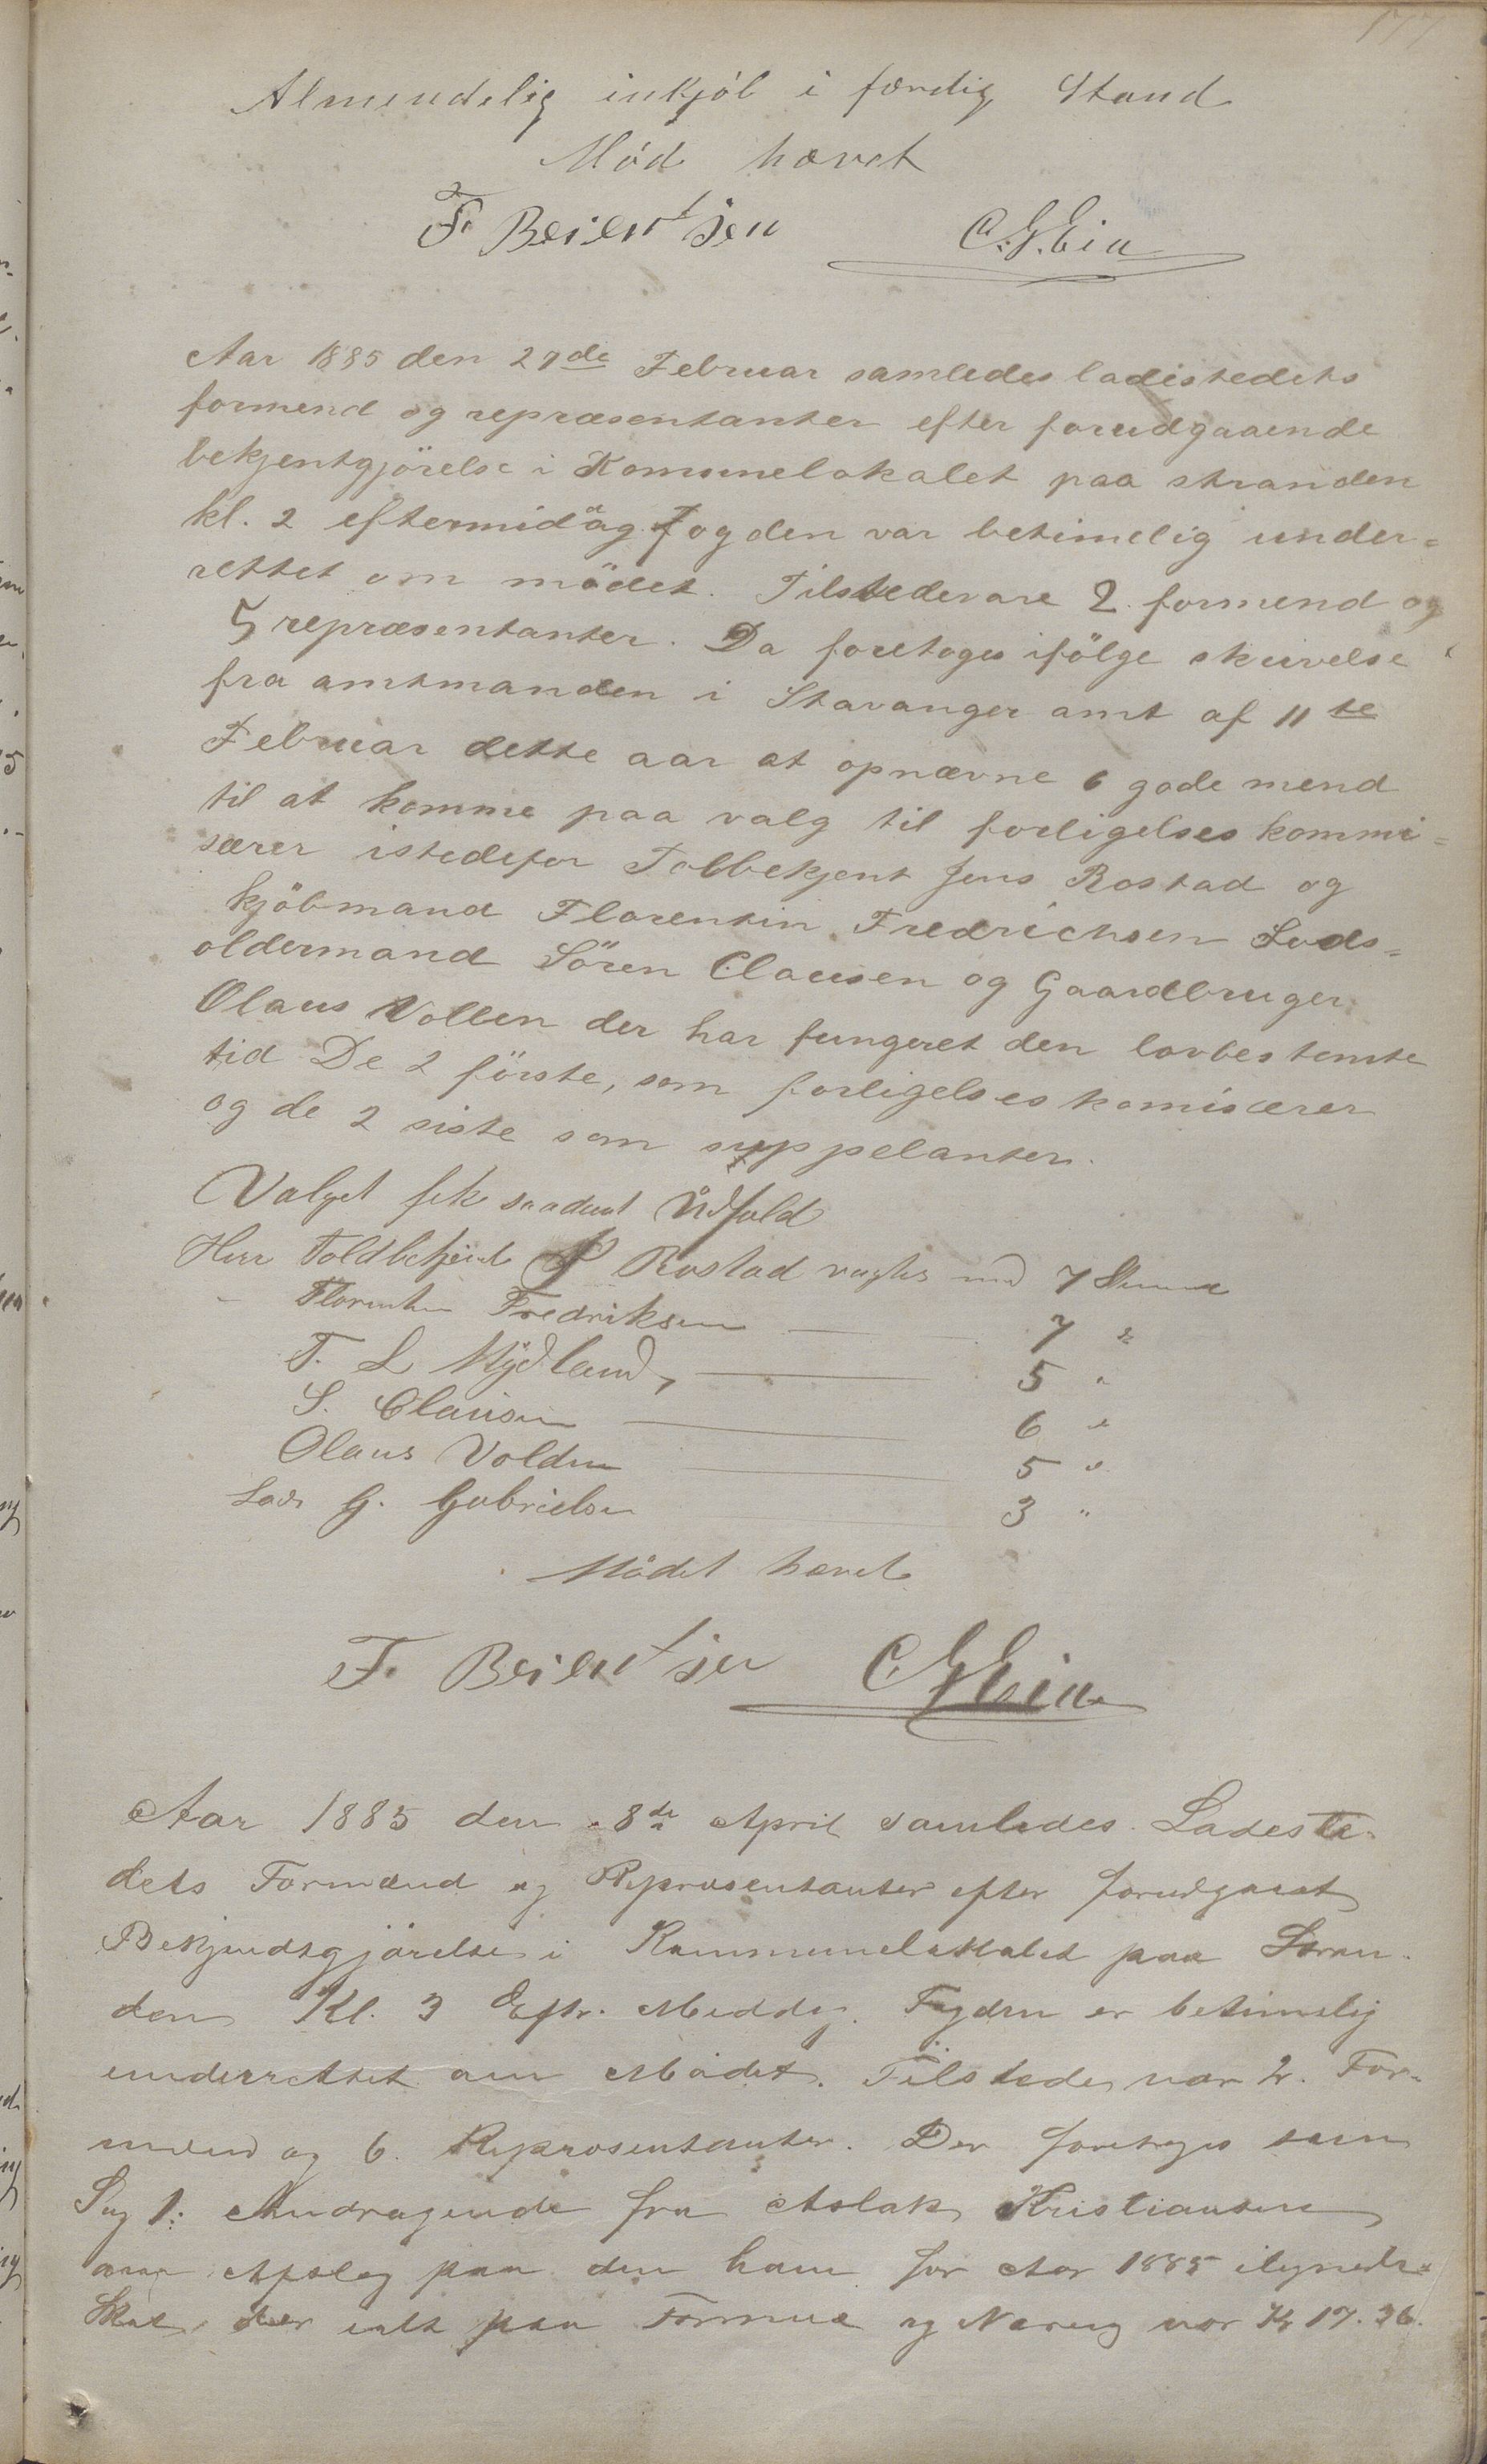 177
Almendelig inkjöb i færdig Stand
Möd hævet
F. Beientsen C. G. Eia
Aar 1885 den 27de Februar samledes ladestedets
formend og repræsentanter efter forudgaaende
bekjentgjörelse i Komunelokalet paa stranden
kl. 2 eftermidag fogden var betimelig under-
rettet om mödet. Tilstedevare 2 formend og
5 repræsentanter. Da foretoges ifölge skrivelse
fra amtmanden i Stavanger amt af 11te
Februar dette aar at opnævne 6 gode mend
til at komme paa valg til forligelses kommi-
særer istedefor Tolbekjent Jens Rostad og
kjöbmand Florentin Fredrichsen Lods-
oldermand Sören Clausen og Gaardbruger
Olaus Vollen der har fungeret den lovbestemte
tid De 2 förste, som forligelses komisærer
og de 2 siste som suppelanter.
Valget fik saadant Udfald
Herr Toldbetjent J Rostad valgtes med 7 Stemme
" Florentin Fredriksen 7 "
T. L Mydland, 5 "
S. Clausen 6 "
Olaus Volden 5 "
Lods G. Gabrielsen 3 "
Mödet hævet
F. Beientsen C G Eia
Aar 1885 den 8de April samledes Ladeste-
dets Formænd og Repræsentanter efter forudgaaet
Bekjendtgjörelse i Kommunelokalet paa Stran-
den Kl. 3 Eftr. Middag. Fogden er betimelig
underrettet om Mödet. Tilstede var 2. For-
mænd og 6. Repræsentanter. Der foretoges som
Sag 1: Andragende fra Aslak Kristiansen
om Afslag paa den ham for Aar 1885 ilignede
Skat, der ialt paa Formue og Næring var Kr 17.36.